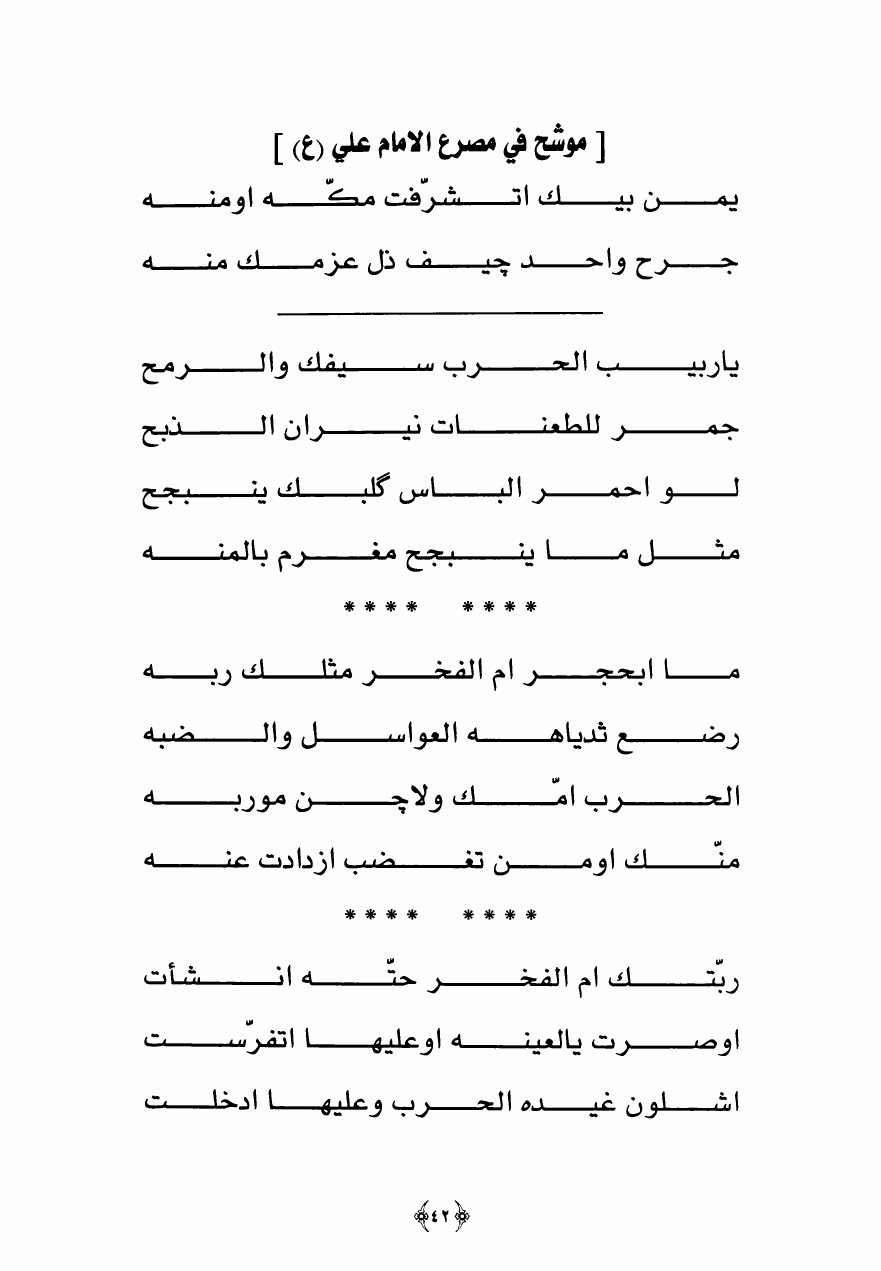 [ موشح في مصرع الامام علي (ع) ]
يمن بيك اتشرّفت مكّه اومنه
جرح واحد چيف ذل عزمك منه
ياربيب الحرب سيفك والرمح
جمر للطعنات نيران الذبح
لو احمر الباس گلبك ينبجح
مثل ما ينبجح مغرم بالمنه
**** ****
ما ابحجر ام الفخر مثلك ربه
رضع ثدياهه العواسل والضبه
الحرب امّك ولاچن موربه
منّك اومن تغضب ازدادت عنه
**** ****
ربّتك ام الفخر حتّه انشأت
اوصرت يالعينه اوعليها اتفرّست
اشلون غيده الحرب وعليها ادخلت
﴿٤٢﴾